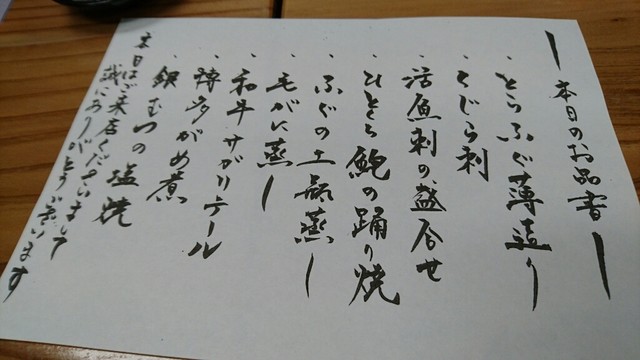 本日のお品書
・とらふぐ薄造り
・くじら刺
・活魚刺の盛合せ
・ひとくち鮑の踊り焼
・ふぐの土瓶蒸し
・毛がに蒸し
・和牛サガリテール
・博多がめ煮
・銀むつの塩焼
本日はご来店くださいまして
誠にありがとうございます